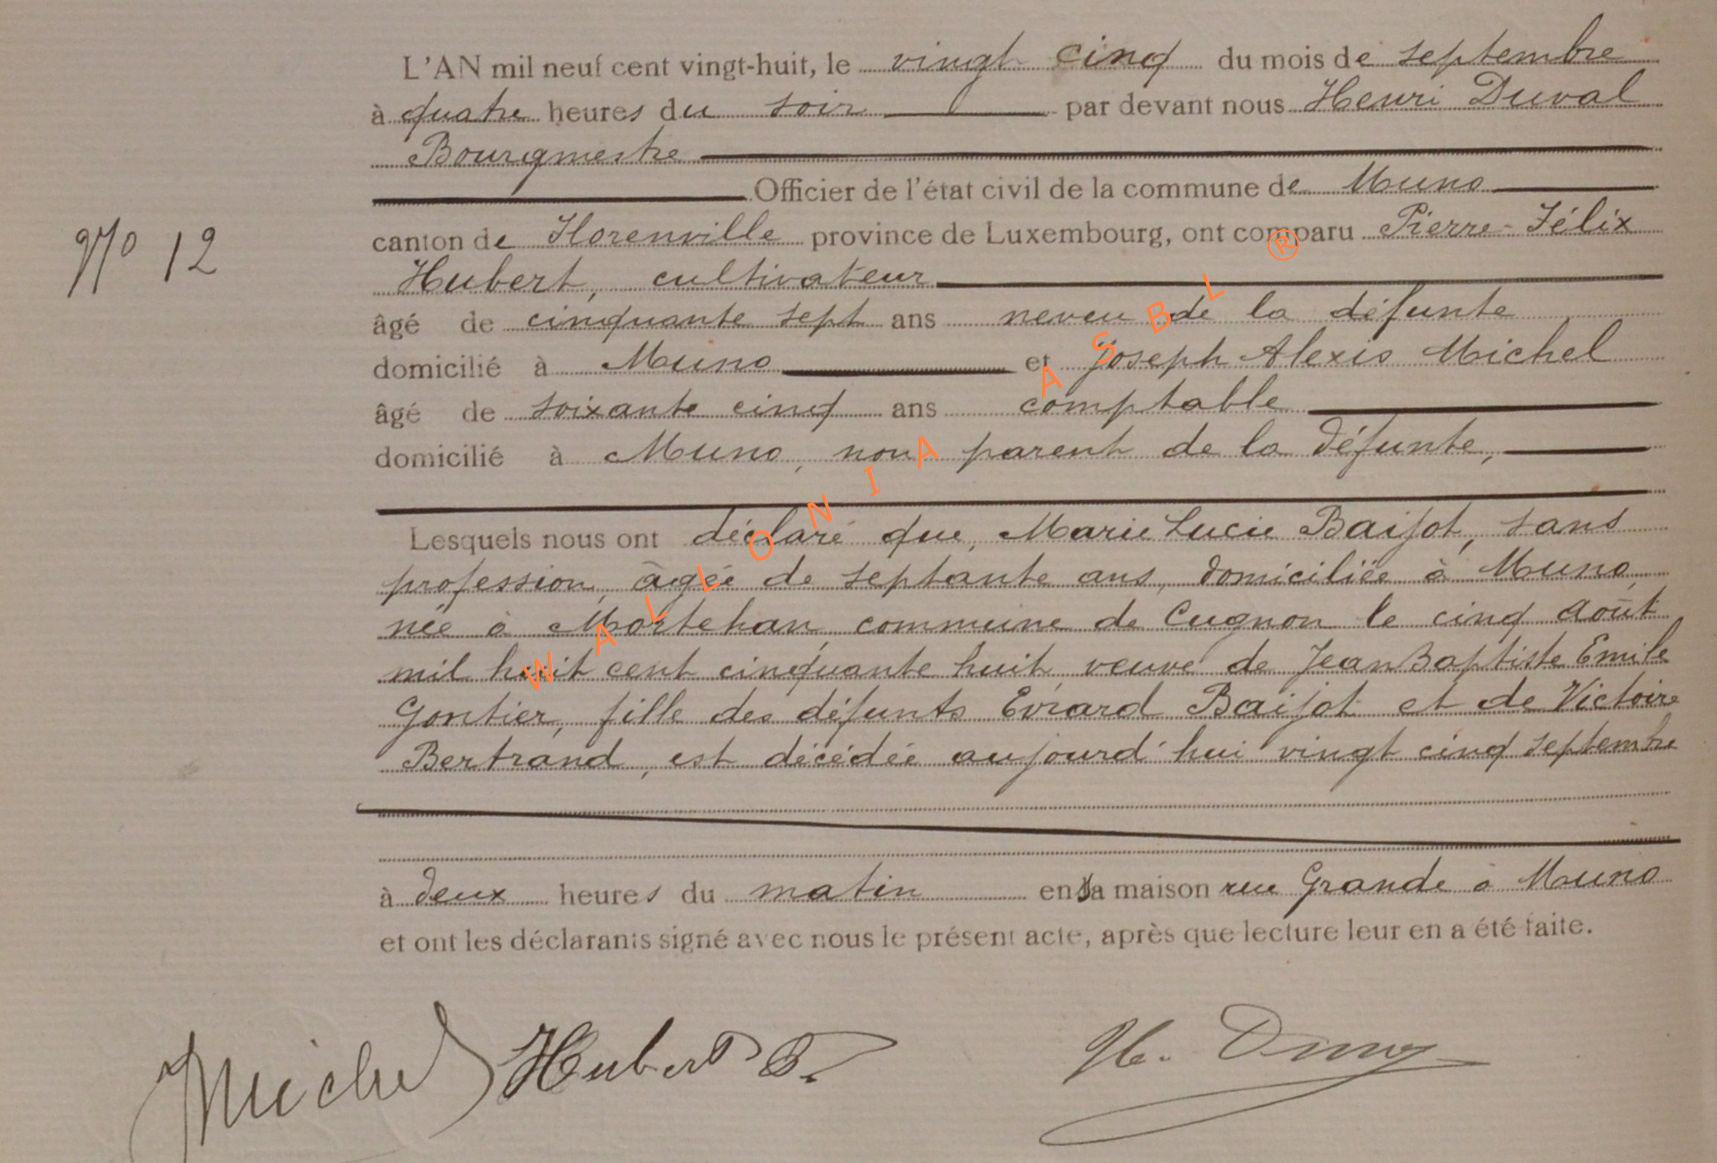 L'AN mil neuf cent vingt-huit, le vingt cinq du mois de septembre
à quatre heures du soir par devant nous Henri Duval
Bourgmestre
Officier de l'état civil de la commune de Muno
N° 12
canton de Florenville province de Luxembourg, ont comparu Pierre-Félix
Hubert, cultivateur
âgé de cinquante sept ans neveu de la défunte
domicilié à Muno et Joseph Alexis Michel
âgé de soixante cinq ans comptable
domicilié à Muno, non parent de la défunte,
Lesquels nous ont déclaré que, Marie Lucie Baijot, sans
profession, âgée de septante ans, domiciliée à Muno,
née à Mortehan, commune de Cugnon le cinq août
mil huit cent cinquante huit, veuve de Jean Baptiste Emile
Gontier, fille des défunts Evrard Baijot et de Victoire
Bertrand, est décédée aujourd'hui vingt cinq septembre
à deux heures du matin en sa maison rue Grande à Muno
et ont les déclarants signé avec nous le présent acte, après que lecture leur en a été faite.
Michel Hubert F. H. Duval
WALLONIA ASBL ®